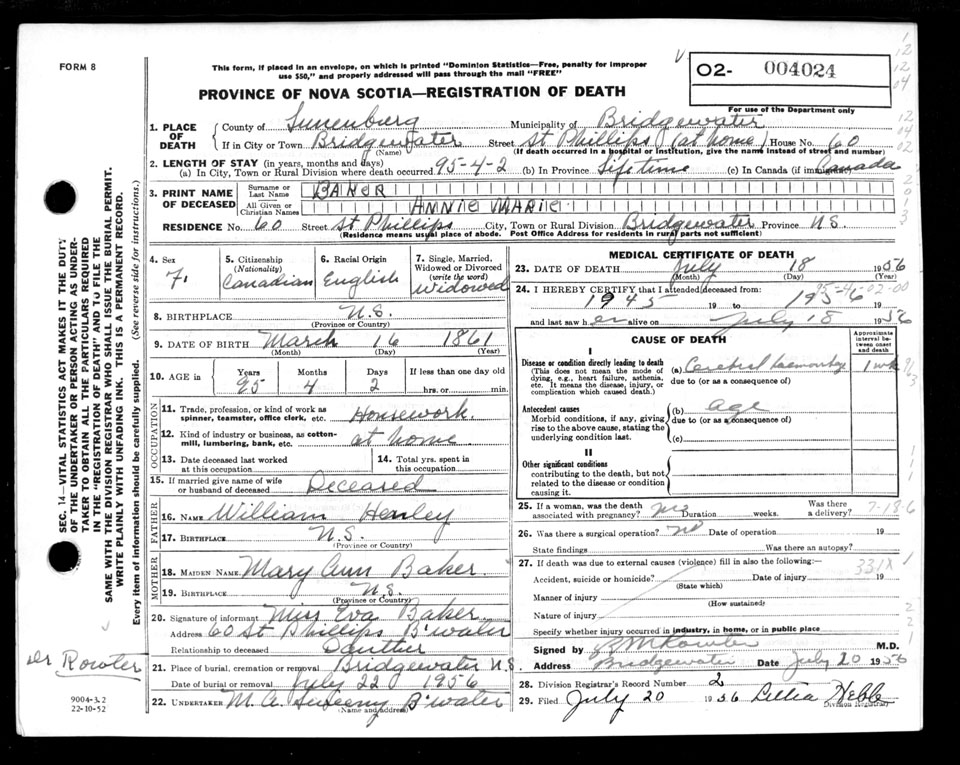 FORM 8
This form, if placed in an envelope, on which is printed "Dominion Statistics—Free, penalty for improper
use $50," and properly addressed will pass through the mail "FREE"
PROVINCE OF NOVA SCOTIA—REGISTRATION OF DEATH
O2- 004024
For use of the Department only
1. PLACE OF DEATH
County of Lunenburg Municipality of Bridgewater
If in City or Town Bridgewater Street St Phillips (at home) House No. 60
(Name) (If death occurred in a hospital or institution, give the name instead of street and number)
2. LENGTH OF STAY (in years, months and days)
(a) In City, Town or Rural Division where death occurred 95-4-2 (b) In Province Lifetime (c) In Canada (if immigrant) Canada
3. PRINT NAME OF DECEASED
Surname or Last Name BAKER
All Given or Christian Names ANNIE MARIE
RESIDENCE No. 60 Street St Phillips City, Town or Rural Division Bridgewater Province N.S.
(Residence means usual place of abode. Post Office Address for residents in rural parts not sufficient)
4. Sex F.
5. Citizenship (Nationality) Canadian
6. Racial Origin English
7. Single, Married, Widowed or Divorced (write the word) Widowed
8. BIRTHPLACE N.S.
(Province or Country)
9. DATE OF BIRTH March 16 1861
(Month) (Day) (Year)
10. AGE in Years 95 Months 4 Days 2 If less than one day old hrs. or min.
OCCUPATION
11. Trade, profession, or kind of work as spinner, teamster, office clerk, etc. Housework
12. Kind of industry or business, as cotton-mill, lumbering, bank, etc. at home
13. Date deceased last worked at this occupation
14. Total yrs. spent in this occupation
15. If married give name of wife or husband of deceased Deceased
FATHER
16. NAME William Henley
17. BIRTHPLACE N.S.
(Province or Country)
MOTHER
18. MAIDEN NAME Mary Ann Baker
19. BIRTHPLACE N.S.
(Province or Country)
20. Signature of informant Miss Eva Baker
Address 60 St Phillips B'water
Relationship to deceased
21. Place of burial, cremation or removal Bridgewater N.S.
Date of burial or removal July 22 1956
22. UNDERTAKER M. A. Sweeny B'water
(Name and address)
MEDICAL CERTIFICATE OF DEATH
23. DATE OF DEATH July 18 1956
(Month) (Day) (Year)
24. I HEREBY CERTIFY that I attended deceased from
1945 19 to 1956 19
and last saw her alive on July 18 1956
CAUSE OF DEATH
Approximate interval between onset and death
I
Disease or condition directly leading to death
(This does not mean the mode of dying, e.g., heart failure, asthenia, etc. It means the disease, injury, or complication which caused death.)
(a) Cerebral haemorrhage 1 wk
due to (or as a consequence of)
Antecedent causes
Morbid conditions, if any, giving rise to the above cause, stating the underlying condition last.
(b) age
due to (or as a consequence of)
(c)
II
Other significant conditions
contributing to the death, but not related to the disease or condition causing it.
25. If a woman, was the death associated with pregnancy? no Duration weeks. Was there a delivery?
26. Was there a surgical operation? no Date of operation 19
State findings Was there an autopsy?
27. If death was due to external causes (violence) fill in also the following:—
Accident, suicide or homicide? Date of injury 19
(State which)
331X
Manner of injury
(How sustained)
Nature of injury
Specify whether injury occurred in industry, in home, or in public place
Signed by M.D.
Address Bridgewater Date July 20 1956
28. Division Registrar's Record Number 2
29. Filed July 20 1956 Letitia Hebb
Division Registrar
SEC. 14—VITAL STATISTICS ACT MAKES IT THE DUTY
OF THE UNDERTAKER OR PERSON ACTING AS UNDER-
TAKER TO OBTAIN ALL THE PARTICULARS REQUIRED
IN THE "REGISTRATION OF DEATH" AND TO FILE THE
SAME WITH THE DIVISION REGISTRAR WHO SHALL ISSUE THE BURIAL PERMIT.
WRITE PLAINLY WITH UNFADING INK. THIS IS A PERMANENT RECORD.
Every item of information should be carefully supplied. (See reverse side for instructions.)
Dr Rowter
9004-3.2
22-10-52